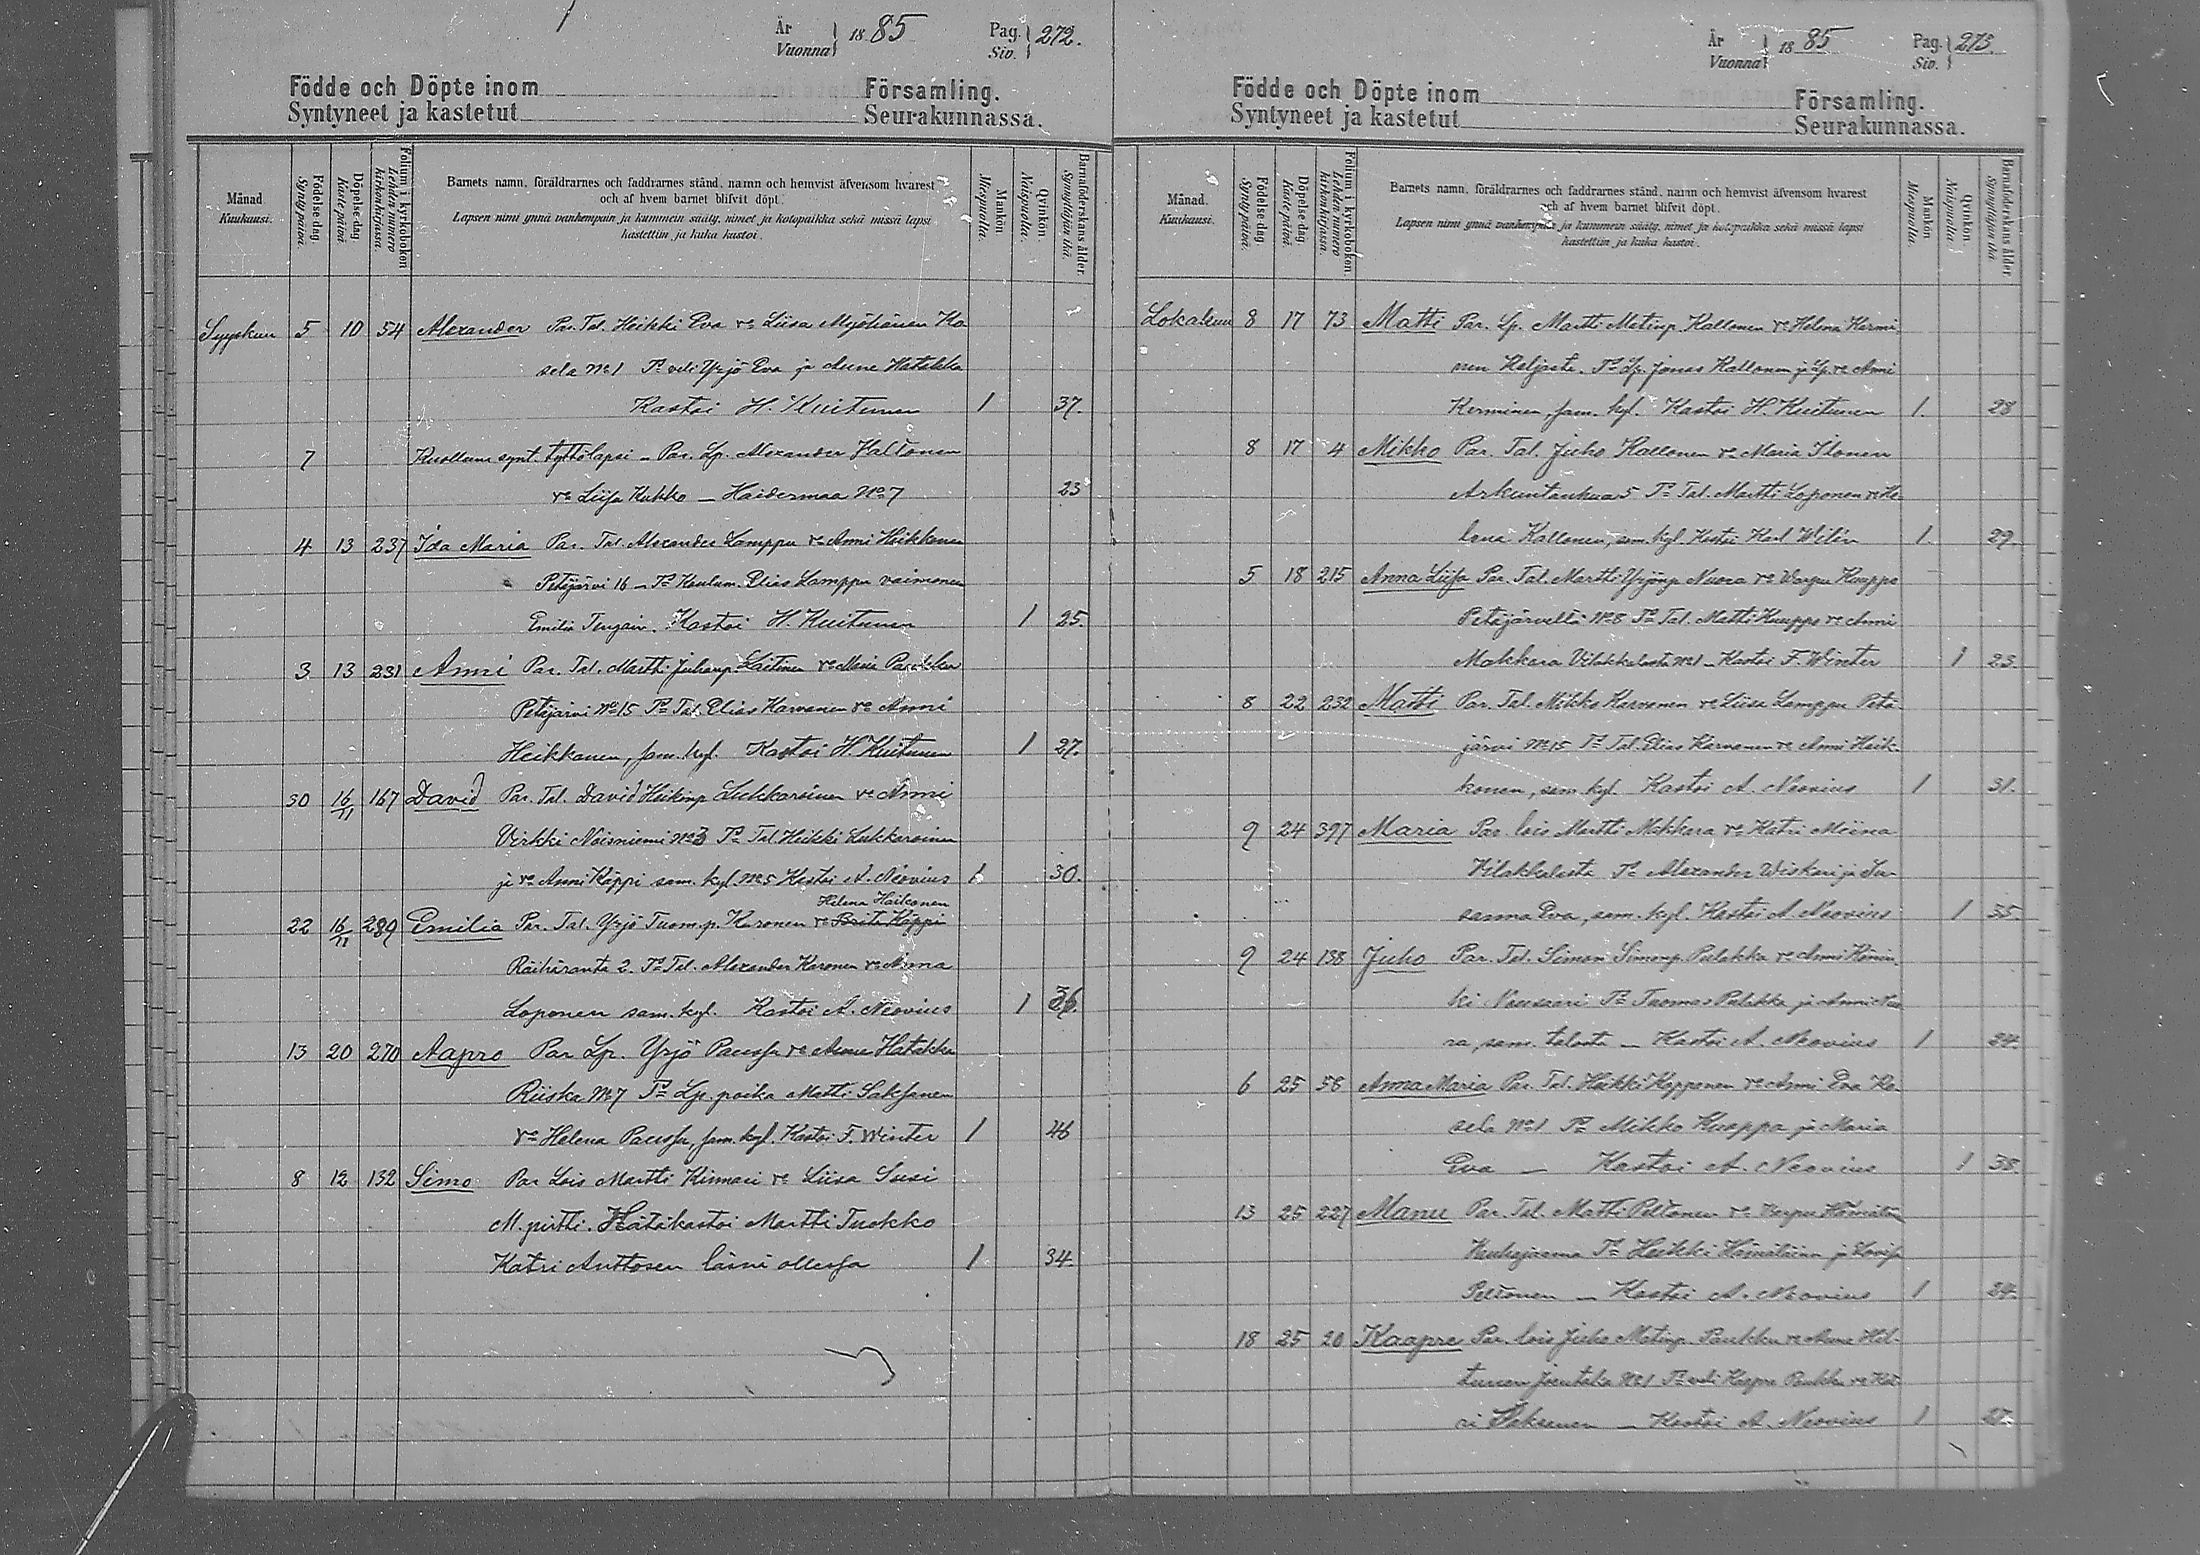 År
Vuonna 1885 Pag. Siv. 272.
Födde och Döpte inom Församling.
Syntyneet ja kastetut Seurakunnassa.
Månad. Kuukausi.
Födelsedag. Syntypäivä.
Döpelsedag. Kastepäivä.
Folium i kyrkoboken. Lehden numero kirkonkirjassa.
Barnets namn, föräldrarnes och faddrarnes stånd, namn och hemvist äfvensom hvarest
och af hvem barnet blifvit döpt.
Lapsen nimi ynnä vanhempain ja kummein sääty, nimet ja kotopaikka sekä missä lapsi
kastettiin ja kuka kastoi.
Mankön. Miespuolia.
Qvinkön. Naispuolia.
Barnaföderskans ålder. Synnyttäjän ikä.
Syyskuu 5 10 54 Alexander Par. Tal. Heikki Eva vo Liisa Myöhänen Ka
sela No 1 To veli Yrjö Eva ja Anne Hatakka
Kastoi H. Kuitunen 1 37.
7 Kuollena synt. tyttölapsi – Par. Lp. Alexander Paltonen
vo Liisa Kukko – Haidermaa No 7 23
4 13 237 Ida Maria Par. Tal. Alexander Lamppu vo Anni Heikkonen
Petäjärvi 16 – To Elias Lamppu vaimonen
Emilia Kastoi H. Kuitunen 1 25.
3 13 231 Anni Par. Tal. Martti Juhanp. Laitinen vo Maria
Petäjärvi No 15 To Tal. Elias Karvanen vo Anni
Heikkonen, sam. kyl. Kastoi H. Kuitunen 1 27.
30 16/11 167 David Par. Tal. David Heikinp. Lukkarinen vo Anni
Virkki Noisniemi No 3 To Tal. Heikki Lukkarinen
ja vo Anni Käppi sam. kyl. No 5 Kastoi A. Neovius 1 30.
Helena Haikonen
22 16/11 289 Emilia Par. Tal. Yrjö Tuomp. Karonen vo Brita Käppi
Räihäranta 2. To Tal. Alexander Karonen vo Anna
Loponen sam. kyl. Kastoi A. Neovius 1 36.
13 20 270 Aapro Par Lp. Yrjö Paussu vo Anne Hatakka
Riiska No 7 To Lp. poika Matti Saksanen
vo Helena Paussu, sam. kyl. Kastoi F. Winter 1 46
8 12 132 Simo Par Lois Martti Kinnari vo Liisa Susi
M. pirtti. Hätäkastoi Martti Tuokko
Katri Anttosen läsnä ollessa 1 34.
År
Vuonna 1885 Pag. Siv. 273.
Födde och Döpte inom Församling.
Syntyneet ja kastetut Seurakunnassa.
Månad. Kuukausi.
Födelsedag. Syntypäivä.
Döpelsedag. Kastepäivä.
Folium i kyrkoboken. Lehden numero kirkonkirjassa.
Barnets namn, föräldrarnes och faddrarnes stånd, namn och hemvist äfvensom hvarest
och af hvem barnet blifvit döpt.
Lapsen nimi ynnä vanhempain ja kummein sääty, nimet ja kotopaikka sekä missä lapsi
kastettiin ja kuka kastoi.
Mankön. Miespuolia.
Qvinkön. Naispuolia.
Barnaföderskans ålder. Synnyttäjän ikä.
Lokakuu 8 17 73 Matti Par. Lp. Martti Matinp. Kallonen vo Helena Kermi
nen Haljasta. To Lp. Jonas Kallonen ja Lp. vo Anni
Kerminen, sam. kyl. Kastoi H. Kuitunen 1. 28
8 17 4 Mikko Par. Tal. Juho Kallonen vo Maria Ilonen
Arkuntanhua 5 To Tal. Martti Loponen vo He
lena Kallonen, sam. kyl. Kastoi Karl Wilén 1. 29.
5 18 215 Anna Liisa Par. Tal. Martti Yrjönp. Nuora vo Vargu Kuappa
Petäjärveltä No 8 To Tal. Matti Kuappa vo Anni
Makkara Vilakkalasta No 1 – Kastoi F. Winter 1 23.
8 22 232 Martti Par. Tal. Mikko Karvanen vo Liisa Lamppu Petä
järvi No 15 To Tal. Elias Karvanen vo Anni Heik
konen, sam. kyl. Kastoi A. Neovius 1 31.
9 24 397 Maria Par. lois Martti Makkara vo Katri Miina
Vilakkalasta To Alexander Wiskari ja Su
sanna Eva, sam. kyl. Kastoi A. Neovius 1 35.
9 24 138 Juho Par. Tal. Simon Simonp. Pulakka vo Anni Hämin
ki Vaussaari To Tuomas Pulakka ja Anni Nuo
ra, sam. talosta – Kastoi A. Neovius 1 24.
6 25 58 Anna Maria Par. Tal. Heikki Kopponen vo Anni Eva Ka
sela No 1 To Mikko Kuappa ja Maria
Eva – Kastoi A. Neovius 1 38.
13 25 227 Manu Par. Tal. Matti Peltonen vo Vargu Hämäläin
To Heikki Hämäläinen ja Lovisa
Peltonen – Kastoi A. Neovius 1 24.
18 25 20 Kaapre Par. lois Juho Matinp. Paukku vo Anna Hil-
tunen Joentaka No 1 To veli Kaapre Paukku vo Kat
ri Saksanen – Kastoi A. Neovius 1 27.